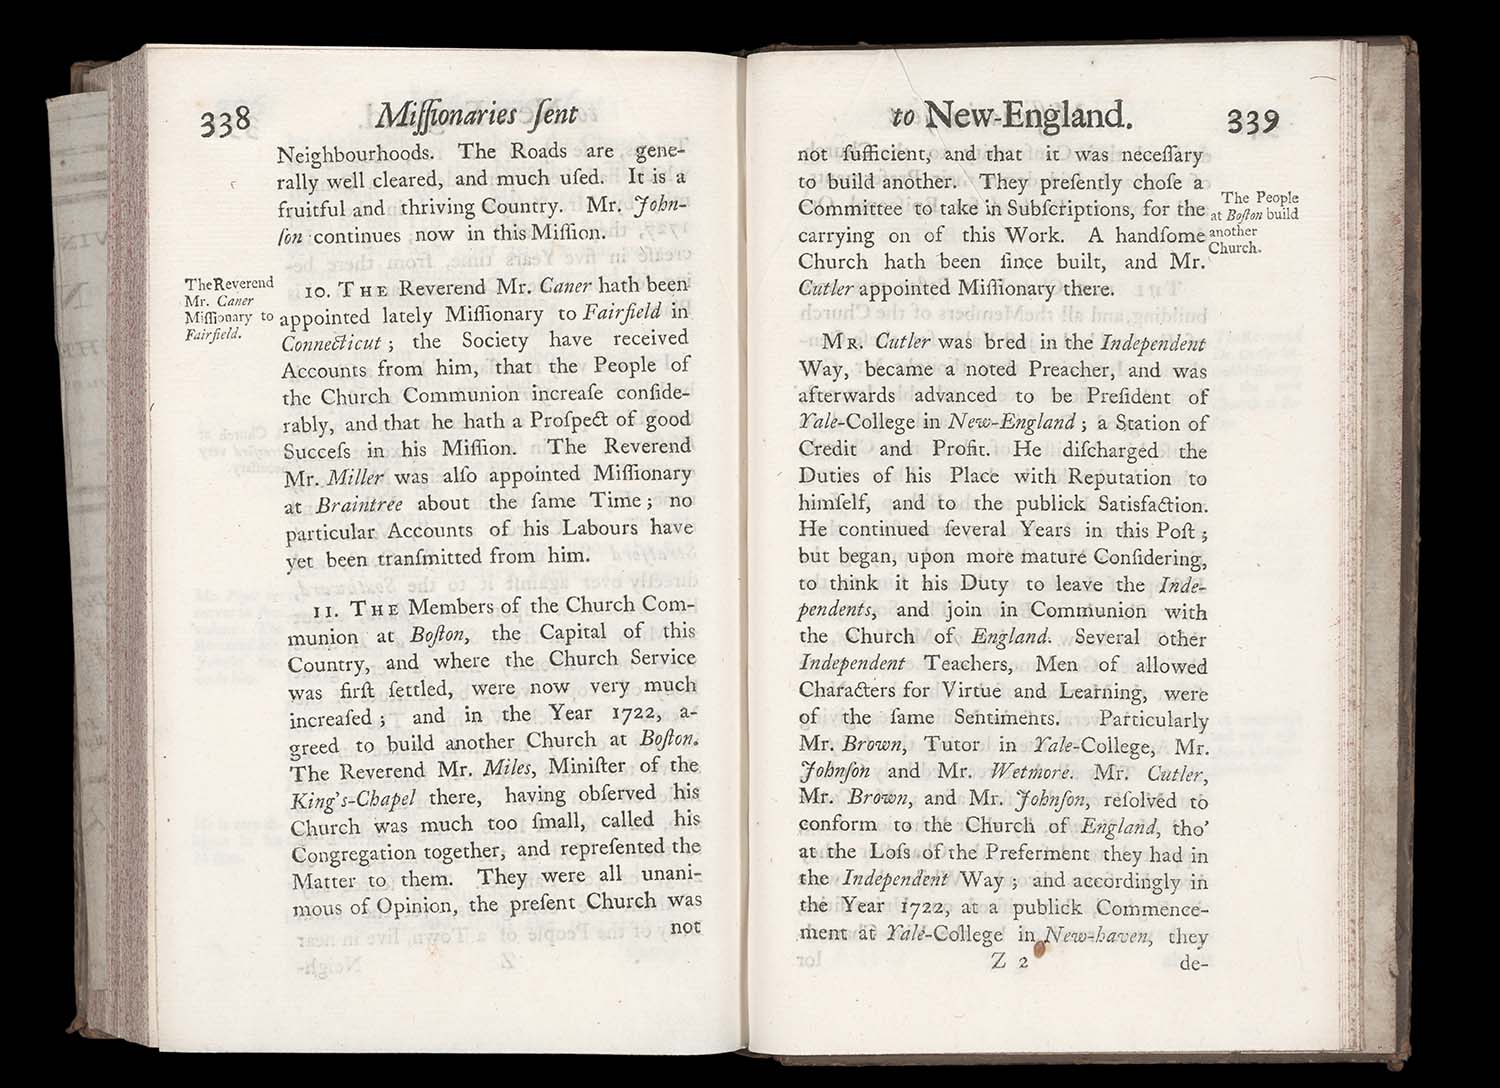 338
Miſſionaries ſent
Neighbourhoods. The Roads are gene-
rally well cleared, and much uſed. It is a
fruitful and thriving Country. Mr. John-
ſon continues now in this Miſſion.
TheReverend
Mr. Caner
Miſſionary to
Fairfield.
10. THE Reverend Mr. Caner hath been
appointed lately Miſſionary to Fairfield in
Connecticut ; the Society have received
Accounts from him, that the People of
the Church Communion increaſe conſide-
rably, and that he hath a Proſpect of good
Succeſs in his Miſſion. The Reverend
Mr. Miller was alſo appointed Miſſionary
at Braintree about the ſame Time ; no
particular Accounts of his Labours have
yet been tranſmitted from him.
11. THE Members of the Church Com-
munion at Boſton, the Capital of this
Country, and where the Church Service
was firſt ſettled, were now very much
increaſed ; and in the Year 1722, a-
greed to build another Church at Boſton.
The Reverend Mr. Miles, Miniſter of the
King's-Chapel there, having obſerved his
Church was much too ſmall, called his
Congregation together, and repreſented the
Matter to them. They were all unani-
mous of Opinion, the preſent Church was
not
to New-England.
339
not ſufficient, and that it was neceſſary
to build another. They preſently choſe a
Committee to take in Subſcriptions, for the
carrying on of this Work. A handſome
Church hath been ſince built, and Mr.
Cutler appointed Miſſionary there.
The People
at Boſton build
another
Church.
MR. Cutler was bred in the Independent
Way, became a noted Preacher, and was
afterwards advanced to be Preſident of
Yale-College in New-England ; a Station of
Credit and Profit. He diſcharged the
Duties of his Place with Reputation to
himſelf, and to the publick Satisfaction.
He continued ſeveral Years in this Poſt ;
but began, upon more mature Conſidering,
to think it his Duty to leave the Inde-
pendents, and join in Communion with
the Church of England. Several other
Independent Teachers, Men of allowed
Characters for Virtue and Learning, were
of the ſame Sentiments. Particularly
Mr. Brown, Tutor in Yale-College, Mr.
Johnſon and Mr. Wetmore. Mr. Cutler,
Mr. Brown, and Mr. Johnſon, reſolved to
conform to the Church of England, tho'
at the Loſs of the Preferment they had in
the Independent Way ; and accordingly in
the Year 1722, at a publick Commence-
ment at Yale-College in New-haven, they
Z 2
de-